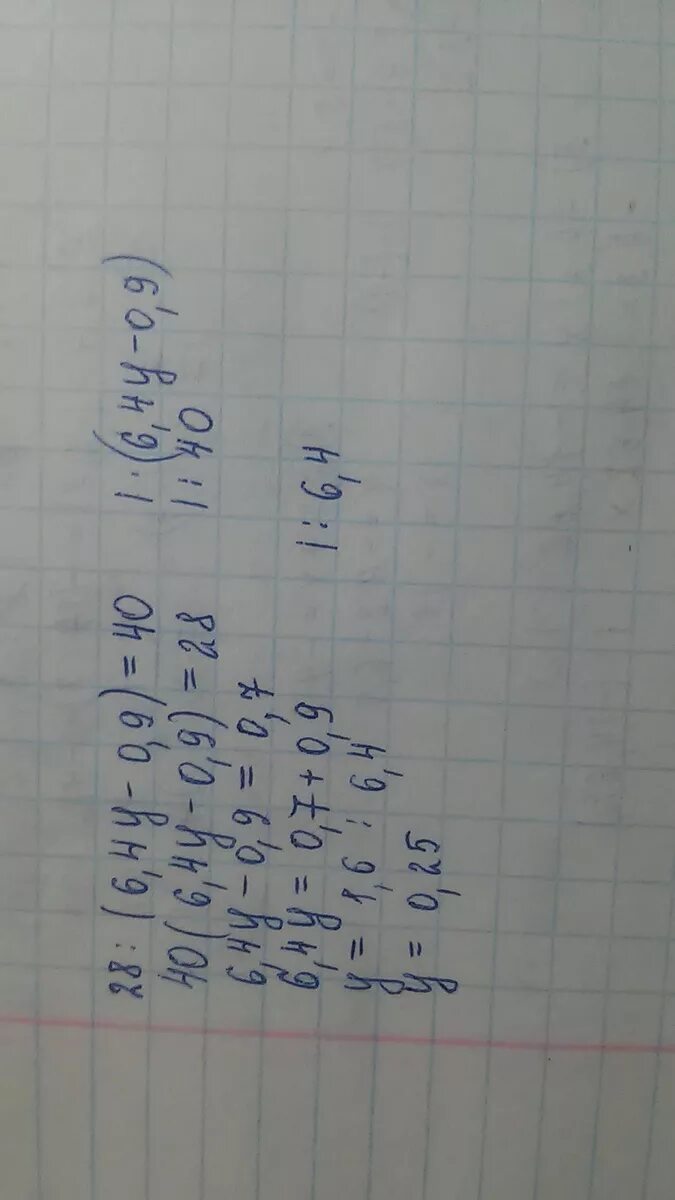 28 : (6,4y - 0,9) = 40 | · (6,4y - 0,9)
40 (6,4y - 0,9) = 28 | : 40
6,4y - 0,9 = 0,7
6,4y = 0,7 + 0,9 | : 6,4
y = 1,6 : 6,4
y = 0,25